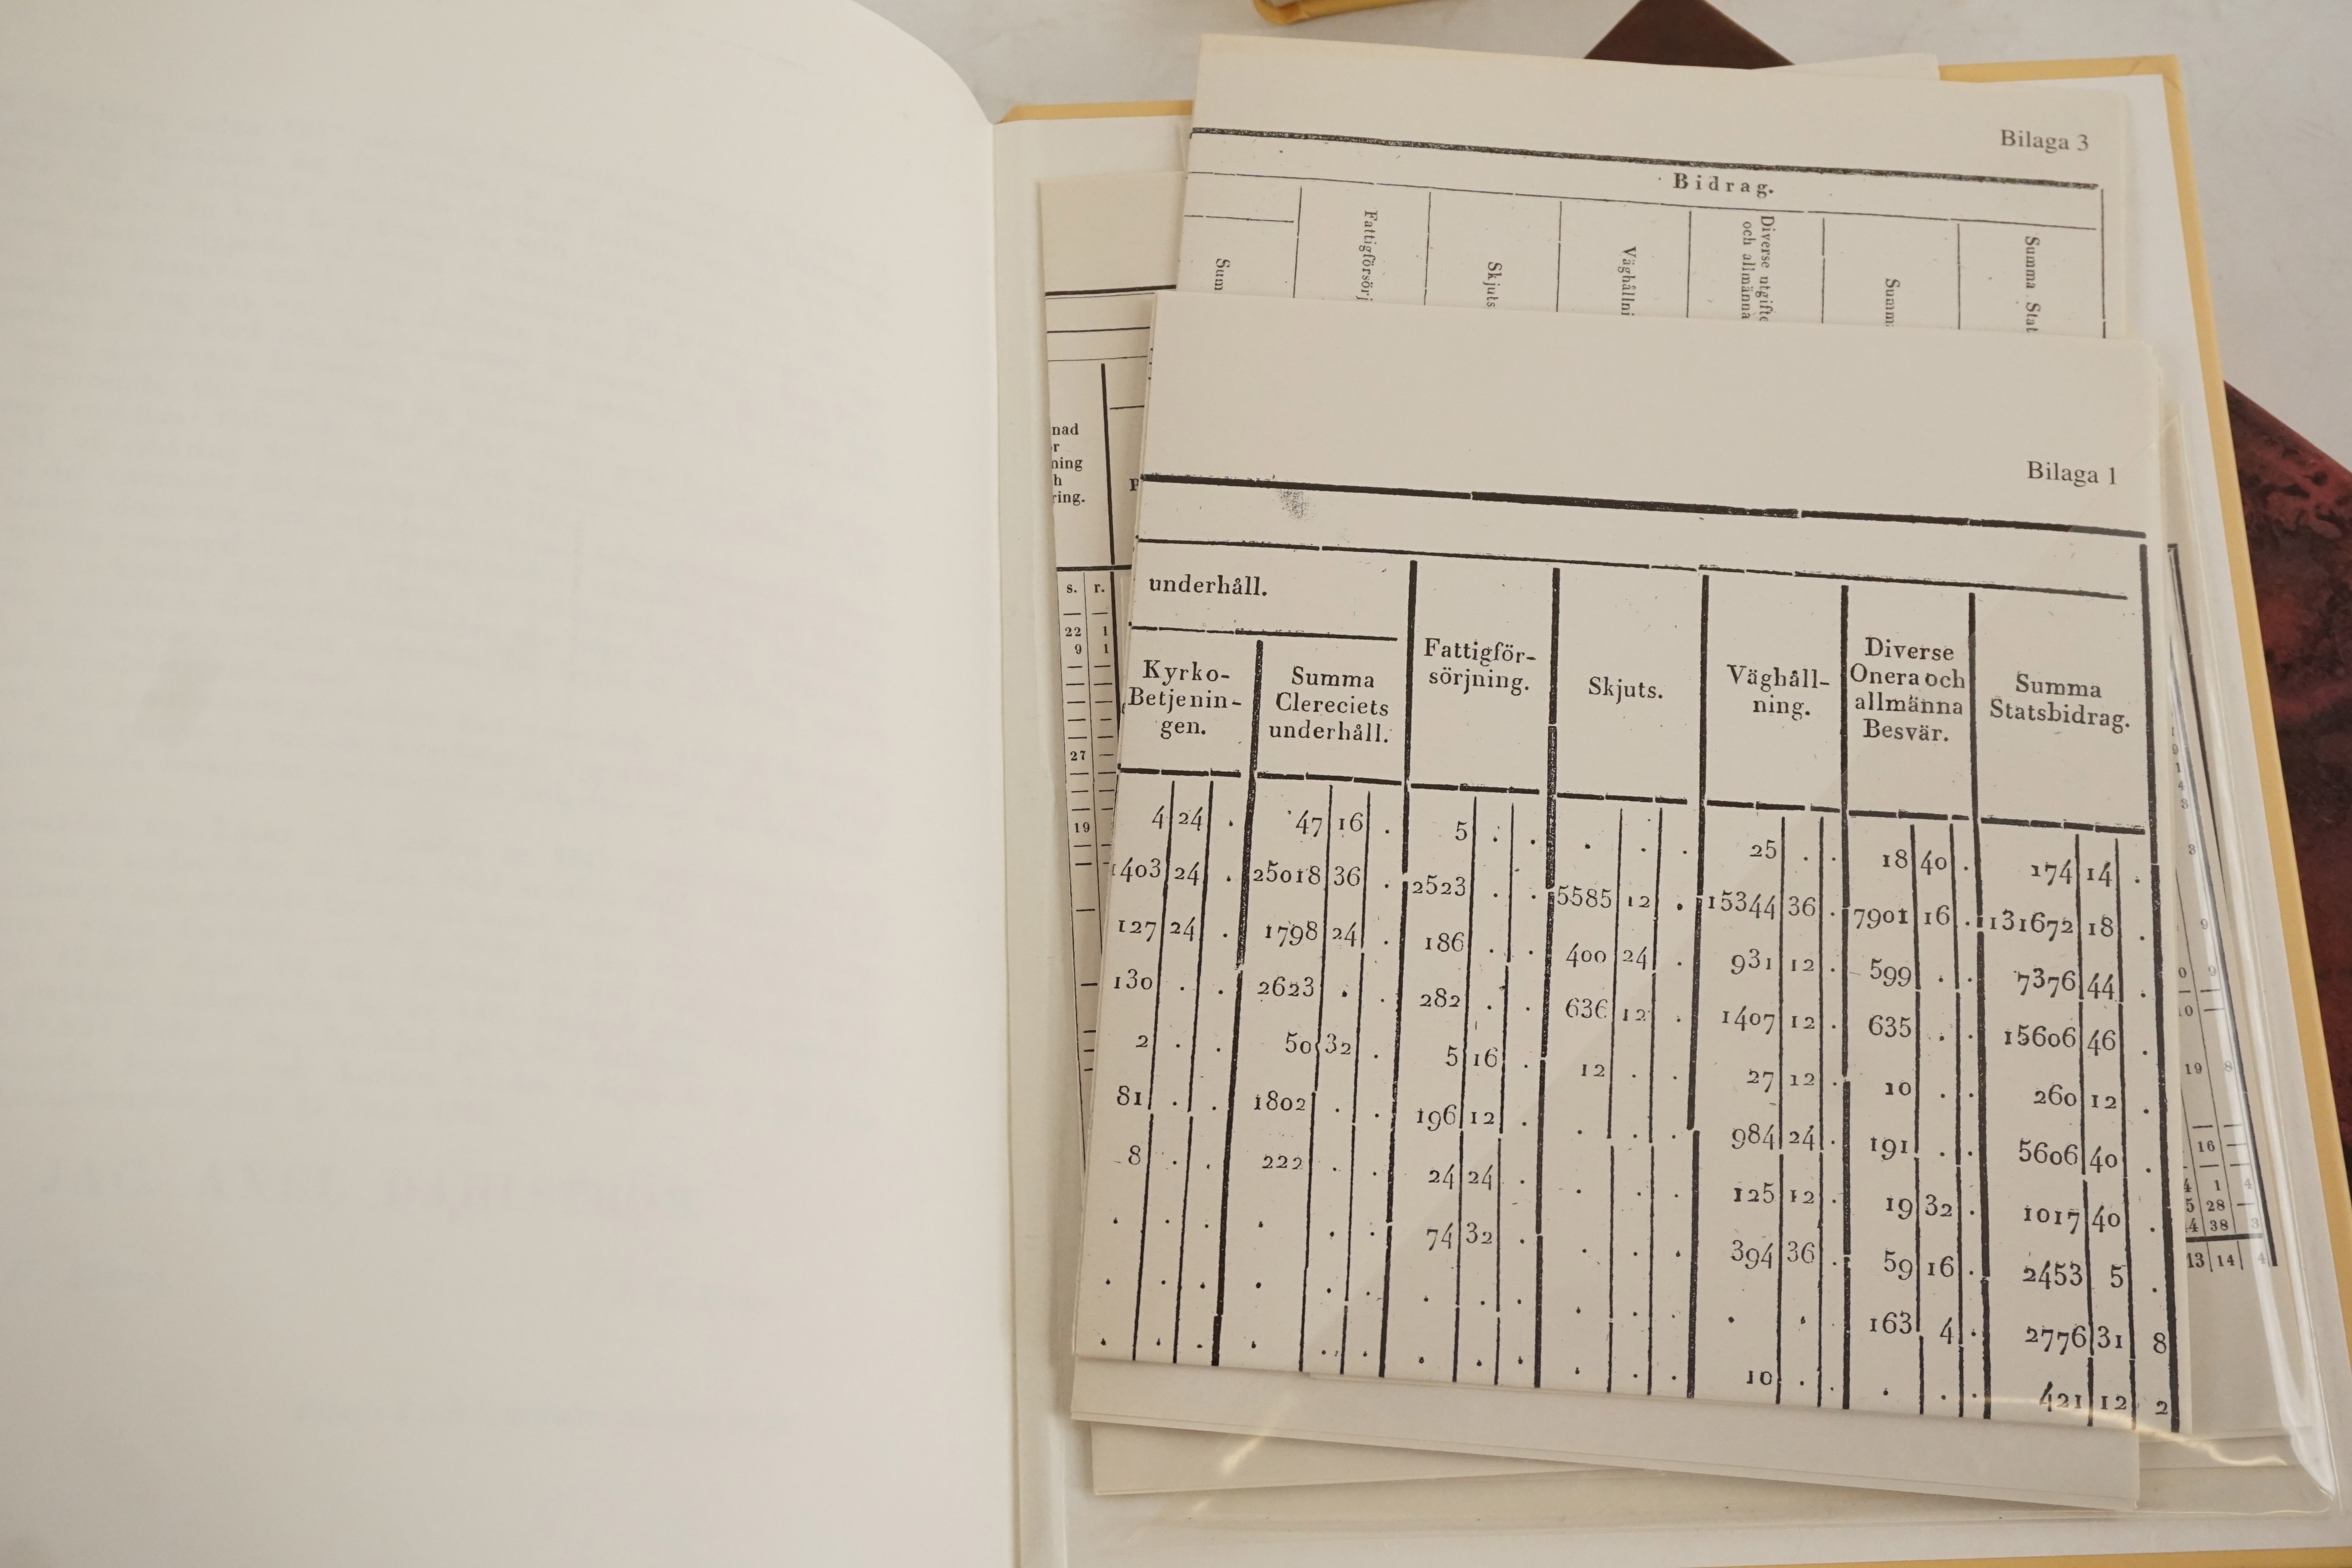 Bilaga 3
Bidrag.
Sum
Fattigförsörj
Skjuts
Väghållni
Diverse utgifte
och allmänna
Summ
Summa Stat
nad
r
ning
h
ring.
s. r.
—
22 1
9 1
27
19
Bilaga 1
underhåll.
Kyrko-
Betjenin-
gen.
Summa
Clereciets
underhåll.
Fattigför-
sörjning.
Skjuts.
Väghåll-
ning.
Diverse
Onera och
allmänna
Besvär.
Summa
Statsbidrag.
4 24 . 47 16 . 5 . . . . . 25 . . 18 40 . 174 14 .
1403 24 . 25018 36 . 2523 . . 5585 12 . 15344 36 . 7901 16 . 131672 18 .
127 24 . 1798 24 . 186 . . 400 24 . 931 12 . 599 . . 7376 44 .
130 . . 2623 . . 282 . . 636 12 . 1407 12 . 635 . . 15606 46 .
2 . . 50 32 . 5 16 . 12 . . 27 12 . 10 . . 260 12 .
81 . . 1802 . . 196 12 . . . . 984 24 . 191 . . 5606 40 .
8 . . 222 . . 24 24 . . . . 125 12 . 19 32 . 1017 40 .
. . . . . . 74 32 . . . . 394 36 . 59 16 . 2453 5 .
. . . . . . . . . . . . . . 163 4 . 2776 31 8
. . . . . . . . . . . . 10 . . . . . 421 12 2
9
19 8
16 —
1 4
5 28 —
4 38 3
13 14 4